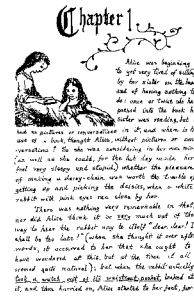 Chapter 1
Alice was beginning
to get very tired of sitting
by her sister on the bank,
and of having nothing to
do: once or twice she had
peeped into the book her
sister was reading, but it
had no pictures or conversations in it, and where is the
use of a book, thought Alice, without pictures or con-
-versations? So she was considering in her own mind,
(as well as she could, for the hot day made her
feel very sleepy and stupid,) whether the pleasure
of making a daisy-chain was worth the trouble of
getting up and picking the daisies, when a white
rabbit with pink eyes ran close by her.
There was nothing very remarkable in that,
nor did Alice think it so very much out of the
way to hear the rabbit say to itself "dear, dear! I
shall be too late!" (when she thought it over after-
wards, it occurred to her that she ought to
have wondered at this, but at the time it all
seemed quite natural); but when the rabbit actually
took a watch out of its waistcoat-pocket, looked at
it, and then hurried on, Alice started to her feet, for